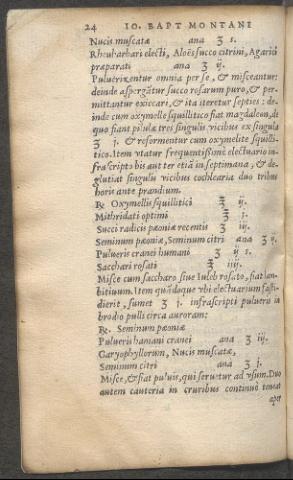 24 IO. BAPT MONTANI
Nucis muscatæ ana ʒ s.
Rheubarbari electi, Aloës succo citrini, Agarici
præparati ana ʒ ij.
Puluerizentur omnia per se, & misceantur:
deinde aspergãtur succo rosarum puro, & per-
mittantur exiccari, & ita iteretur septies: de-
inde cum oxymelle squillitico fiat magdaleon, de
quo fiant pilulæ tres singulis vicibus ex singula
ʒ j. & reformentur cum oxymelite squilli-
tico. Item vtatur frequentissimè electuario in-
frascripto bis aut ter etiã in septimana, & de-
glutiat singulis vicibus cochlearia duo tribus
horis ante prandium.
℞ Oxymellis squillitici ℥ ij.
Mithridati optimi ℥ j.
Succi radicis pæoniæ recentis ℥ iij.
Seminum pæoniæ, Seminum citri ana ʒ ij.
Pulueris cranei humani ʒ ij s.
Sacchari rosati ℥ iiij.
Misce cum saccharo siue Iuleb rosato, fiat lam-
bitiuum. Item quãdoque vbi electuarium fasti-
dierit, sumet ʒ j. infrascripti pulueris in
brodio pulli circa auroram:
℞. Seminum pæoniæ
Pulueris humani cranei ana ʒ iij.
Garyophyllorum, Nucis muscatæ,
Seminum citri ana ʒ j.
Misce, & fiat puluis, qui seruetur ad vsum. Duo
autem cauteria in cruribus continuò teneat
aper